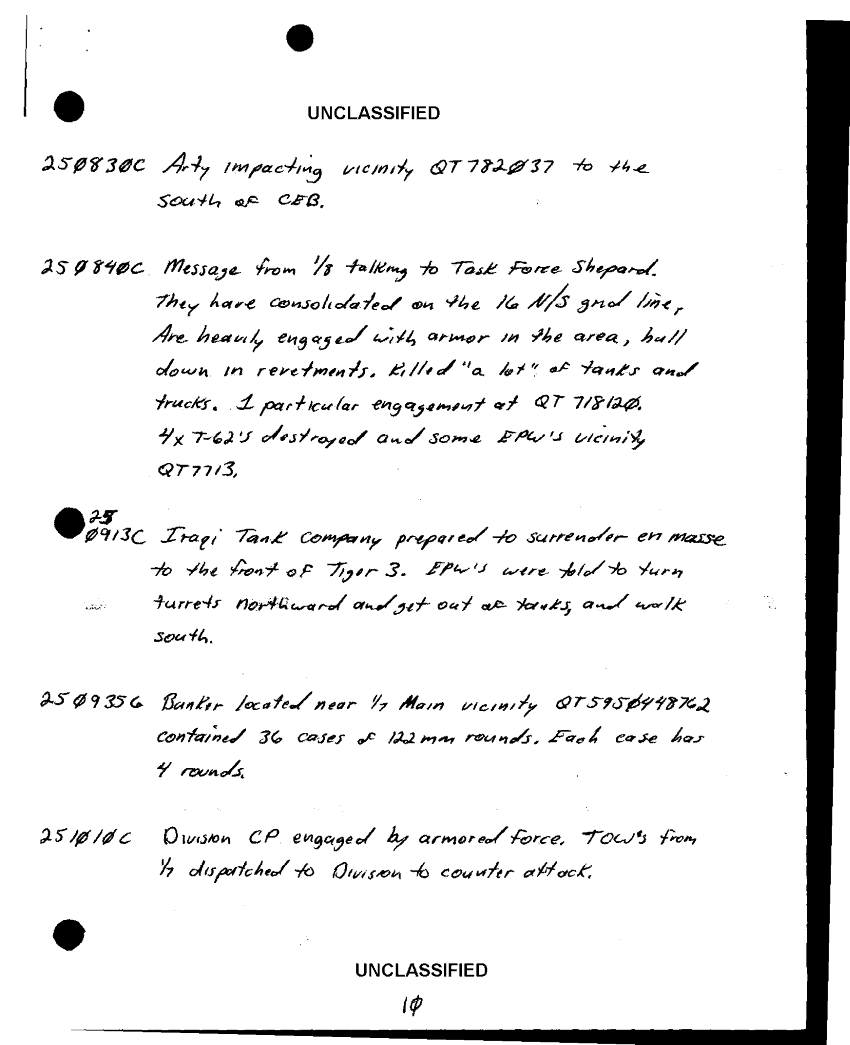 UNCLASSIFIED
25Ø83ØC Arty impacting vicinity QT782Ø37 to the
south of CEB.
25Ø84ØC Message from 1/8 talking to Task Force Shepard.
They have consolidated on the 16 N/S grid line,
Are heavily engaged with armor in the area, hull
down in revetments. Killed "a lot" of tanks and
trucks. 1 particular engagement at QT 71812Ø.
4x T-62's destroyed and some EPW's vicinity
QT7713.
25
Ø913C Iraqi Tank Company prepared to surrender en masse
to the front of Tiger 3. EPW's were told to turn
turrets northward and get out of tanks, and walk
south.
25Ø935C Bunker located near 1/7 Main vicinity QT595Ø448762
contained 36 cases of 122mm rounds. Each case has
4 rounds.
251Ø1ØC Division CP engaged by armored force. TOW's from
1/7 dispatched to Division to counter attack.
UNCLASSIFIED
1Ø